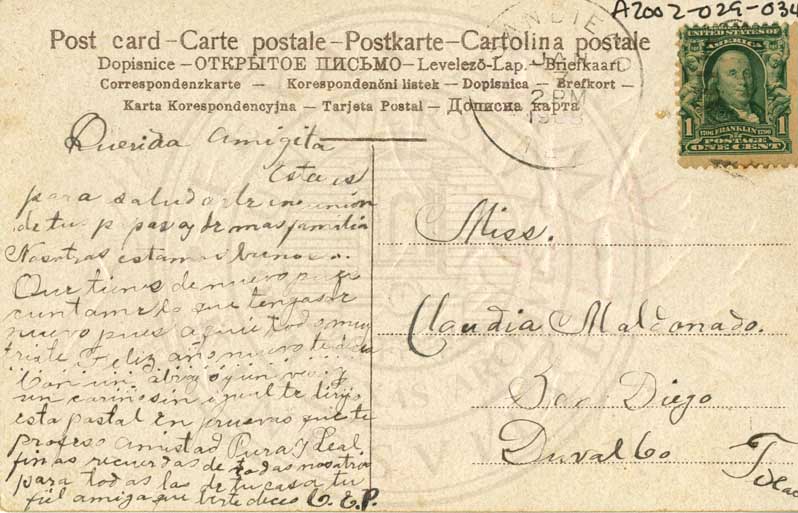 A2002-029-034
Post card – Carte postale – Postkarte – Cartolina postale
Dopisnice – ОТКРЫТОЕ ПИСЬМО – Levelező-Lap. – Briefkaart
Correspondenzkarte – Korespondenční listek – Dopisnica – Brefkort –
Karta Korespondencyjna – Tarjeta Postal – Дописна карта
UNITED STATES OF AMERICA
1 1706 FRANKLIN 1790 1
POSTAGE
ONE CENT
SAN DIEGO
2 PM
Querida Amigita
Esta es
para saludarte en unión
de tus papas y de mas familia
Nosotras estamos buenos.
Que tienes de nuevo pues
cuntame lo que tengas de
nuevo pues aqui todo muy
triste. Feliz año nuevo te
Con un abrazo y un
un cariño sin igual te dirijo
esta postal En prueva que te
profeso amistad Pura y Leal
finas recuerdas de todas nosotras
para todas las de tu casa tu
fiel amiga que verte decea C. E. P.
Miss.
Claudia Maldonado.
San Diego
Duval Co